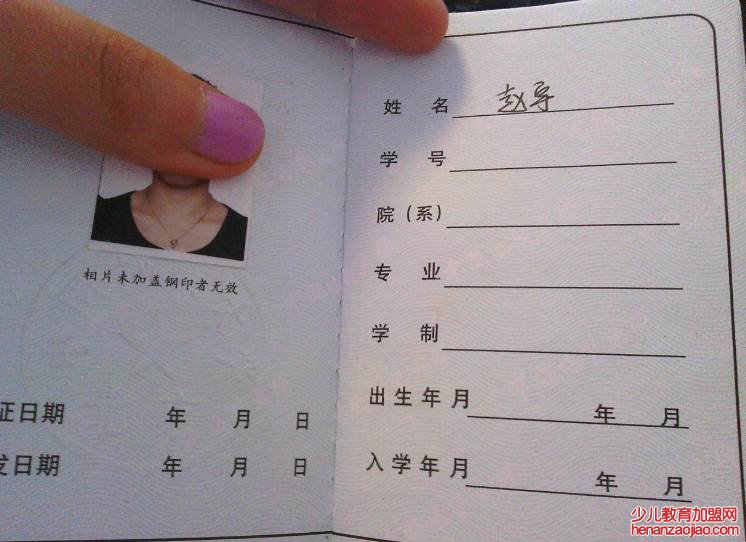 相片未加盖钢印者无效
证日期 年 月 日
发日期 年 月 日
姓 名 赵
学 号
院（系）
专 业
学 制
出生年月 年 月
入学年月 年 月
少儿教育加盟网
henanzaojiao.com